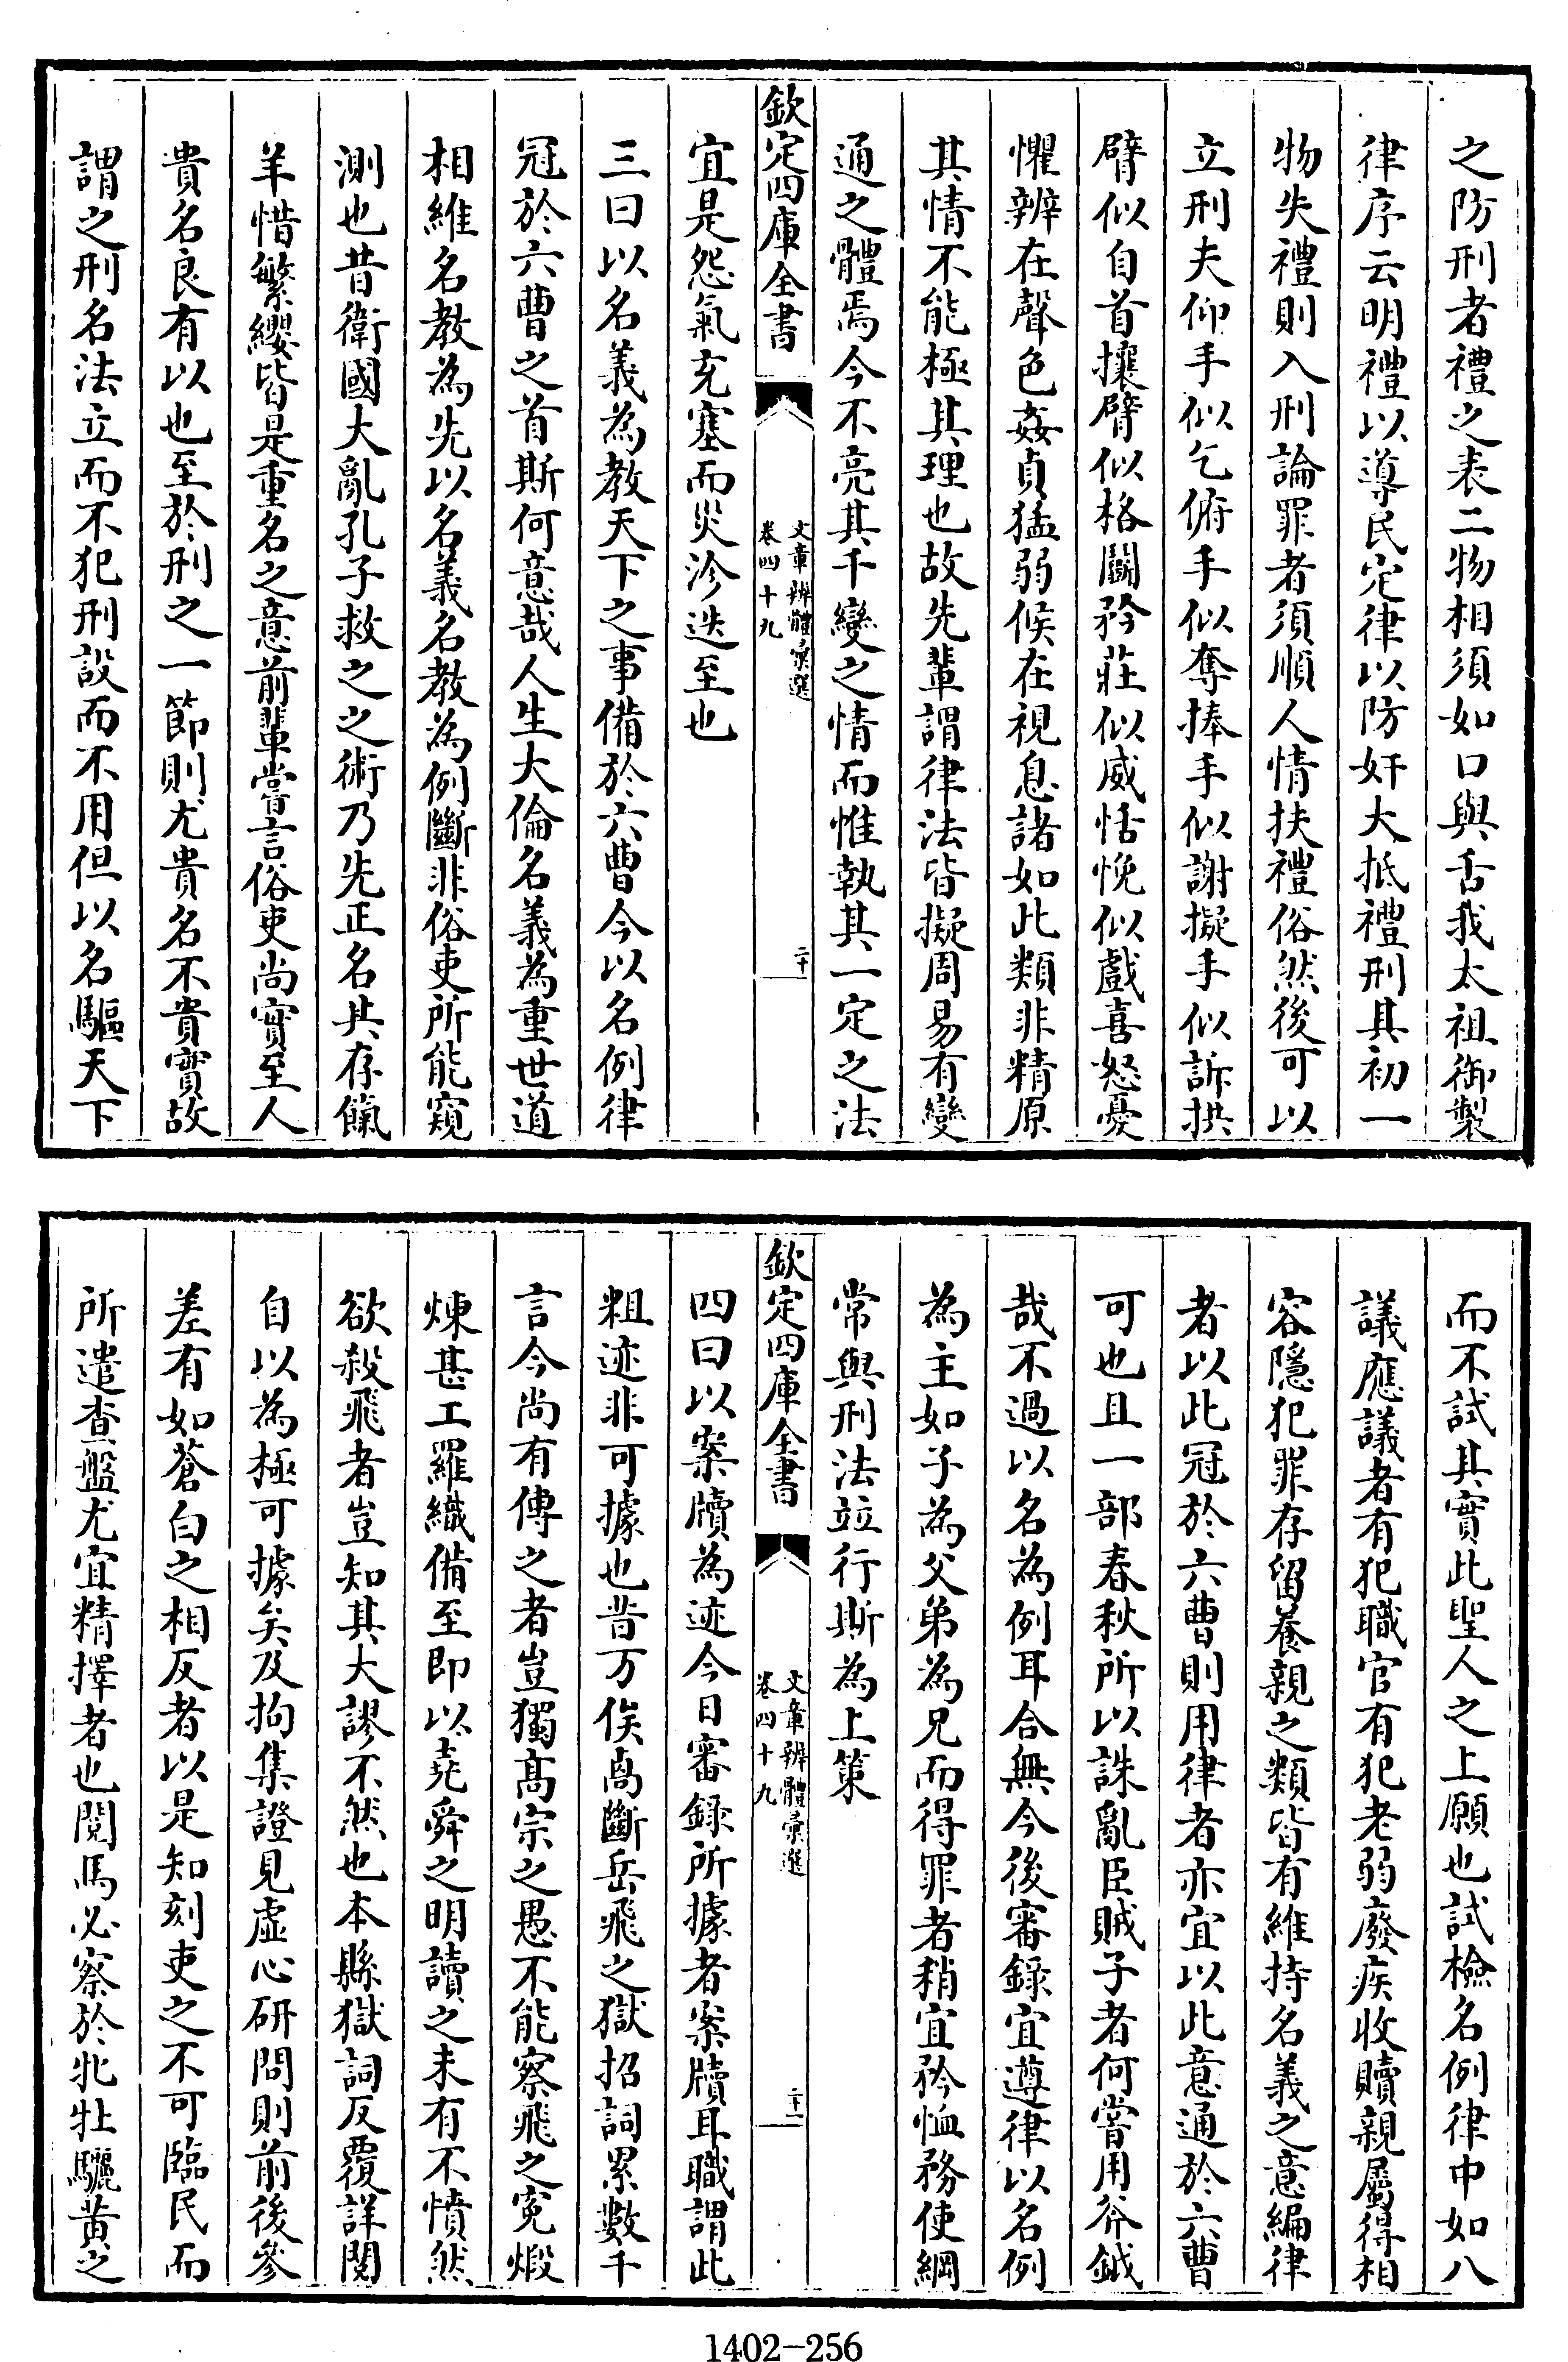 之防刑者禮之表二物相須如口與舌我太祖御製
律序云明禮以導民定律以防奸大抵禮刑其初一
物失禮則入刑論罪者須順人情扶禮俗然後可以
立刑夫仰手似乞俯手似奪捧手似謝擬手似訴拱
臂似自首攘臂似格鬬矜莊似威恬悅似戲喜怒憂
懼辨在聲色姦貞猛弱候在視息諸如此類非精原
其情不能極其理也故先輩謂律法皆擬周易有變
通之體焉今不亮其千變之情而惟執其一定之法
欽定四庫全書
文章辨體彙選
卷四十九
二十
宜是怨氣充塞而災沴迭至也
三曰以名義為教天下之事備於六曹今以名例律
冠於六曹之首斯何意哉人生大倫名義為重世道
相維名教為先以名義名教為例斷非俗吏所能窺
測也昔衛國大亂孔子救之之術乃先正名其存餼
羊惜繁纓皆是重名之意前輩嘗言俗吏尚實至人
貴名良有以也至於刑之一節則尤貴名不貴實故
謂之刑名法立而不犯刑設而不用但以名驅天下
而不試其實此聖人之上願也試檢名例律中如八
議應議者有犯職官有犯老弱廢疾收贖親屬得相
容隱犯罪存留養親之類皆有維持名義之意編律
者以此冠於六曹則用律者亦宜以此意通於六曹
可也且一部春秋所以誅亂臣賊子者何嘗用斧鉞
哉不過以名為例耳合無今後審錄宜遵律以名例
為主如子為父弟為兄而得罪者稍宜矜恤務使綱
常與刑法竝行斯為上策
欽定四庫全書
文章辨體彙選
卷四十九
二十一
四曰以案牘為迹今日審錄所據者案牘耳職謂此
粗迹非可據也昔万俟卨斷岳飛之獄招詞累數千
言今尚有傳之者豈獨髙宗之愚不能察飛之寃煅
煉甚工羅織備至即以堯舜之明讀之未有不憤然
欲殺飛者豈知其大謬不然也本縣獄詞反覆詳閱
自以為極可據矣及拘集證見虛心研問則前後參
差有如蒼白之相反者以是知刻吏之不可臨民而
所遣查盤尤宜精擇者也閱馬必察於牝牡驪黄之
1402-256